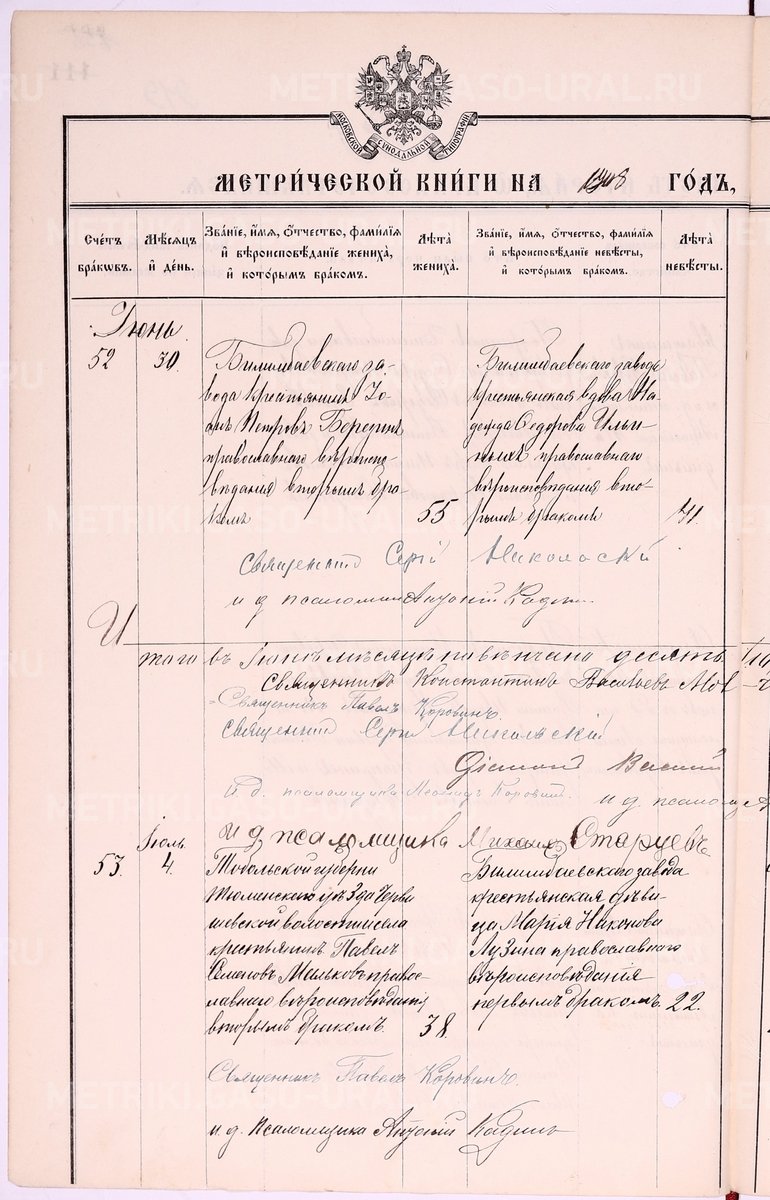 METRIKI.GASO-URAL.RU
МОСКОВСКОЙ СѴНОДАЛЬНОЙ ТИПОГРАФІИ
МЕТРИ́ЧЕСКОЙ КНИ́ГИ НА 1908 ГО́ДЪ,
Сче́тъ бра́кѡвъ.
Мѣ́сяцъ и҆ де́нь.
Зва́нїе, и҆́мѧ, ѻ҆́тчество, фами́лїѧ и҆ вѣроисповѣ́данїе жениха̀, и҆ кото́рымъ бра́комъ.
Лѣ́та жениха̀.
Зва́нїе, и҆́мѧ, ѻ҆́тчество, фами́лїѧ и҆ вѣроисповѣ́данїе невѣ́сты, и҆ кото́рымъ бра́комъ.
Лѣ́та невѣ́сты.
Іюнь
52
30.
Билимбаевскаго за-
вода крестьянинъ Іо-
аннъ Петровъ Бередин
православнаго вѣроиспо-
вѣданія вторымъ бра-
комъ
55
Билимбаевскаго завода
крестьянская вдова На-
дежда Ѳедорова Ильи-
ныхъ православнаго
вѣроисповѣданія вто-
рымъ бракомъ
41.
Священник Сергій Никольскій
и д псаломщ Антоній Кадин
Итого въ Іюнѣ мѣсяцѣ повѣнчано десять
Священникъ Константинъ Васильевъ
Священникъ Павелъ Коровинъ.
Священник Сергій Никольскій
Діаконъ Василій
И. д. псаломщика Леонидъ Коровин. и д. псаломщ
и д псаломщика Михаил Старцевъ
53.
Іюль
4.
Тобольской губерни
Тюменскаго уѣзда Черви-
шевской волости и села
крестьянинъ Павелъ
Семеновъ Мальковъ право-
славнаго вѣроисповѣданія
вторымъ бракомъ.
38
Билимбаевскаго завода
крестьянская дѣви-
ца Марія Никонова
Лузина православнаго
вѣроисповѣданія
первымъ бракомъ.
22.
Священникъ Павелъ Коровинъ.
и. д. Псаломщика Антоній Кадинъ